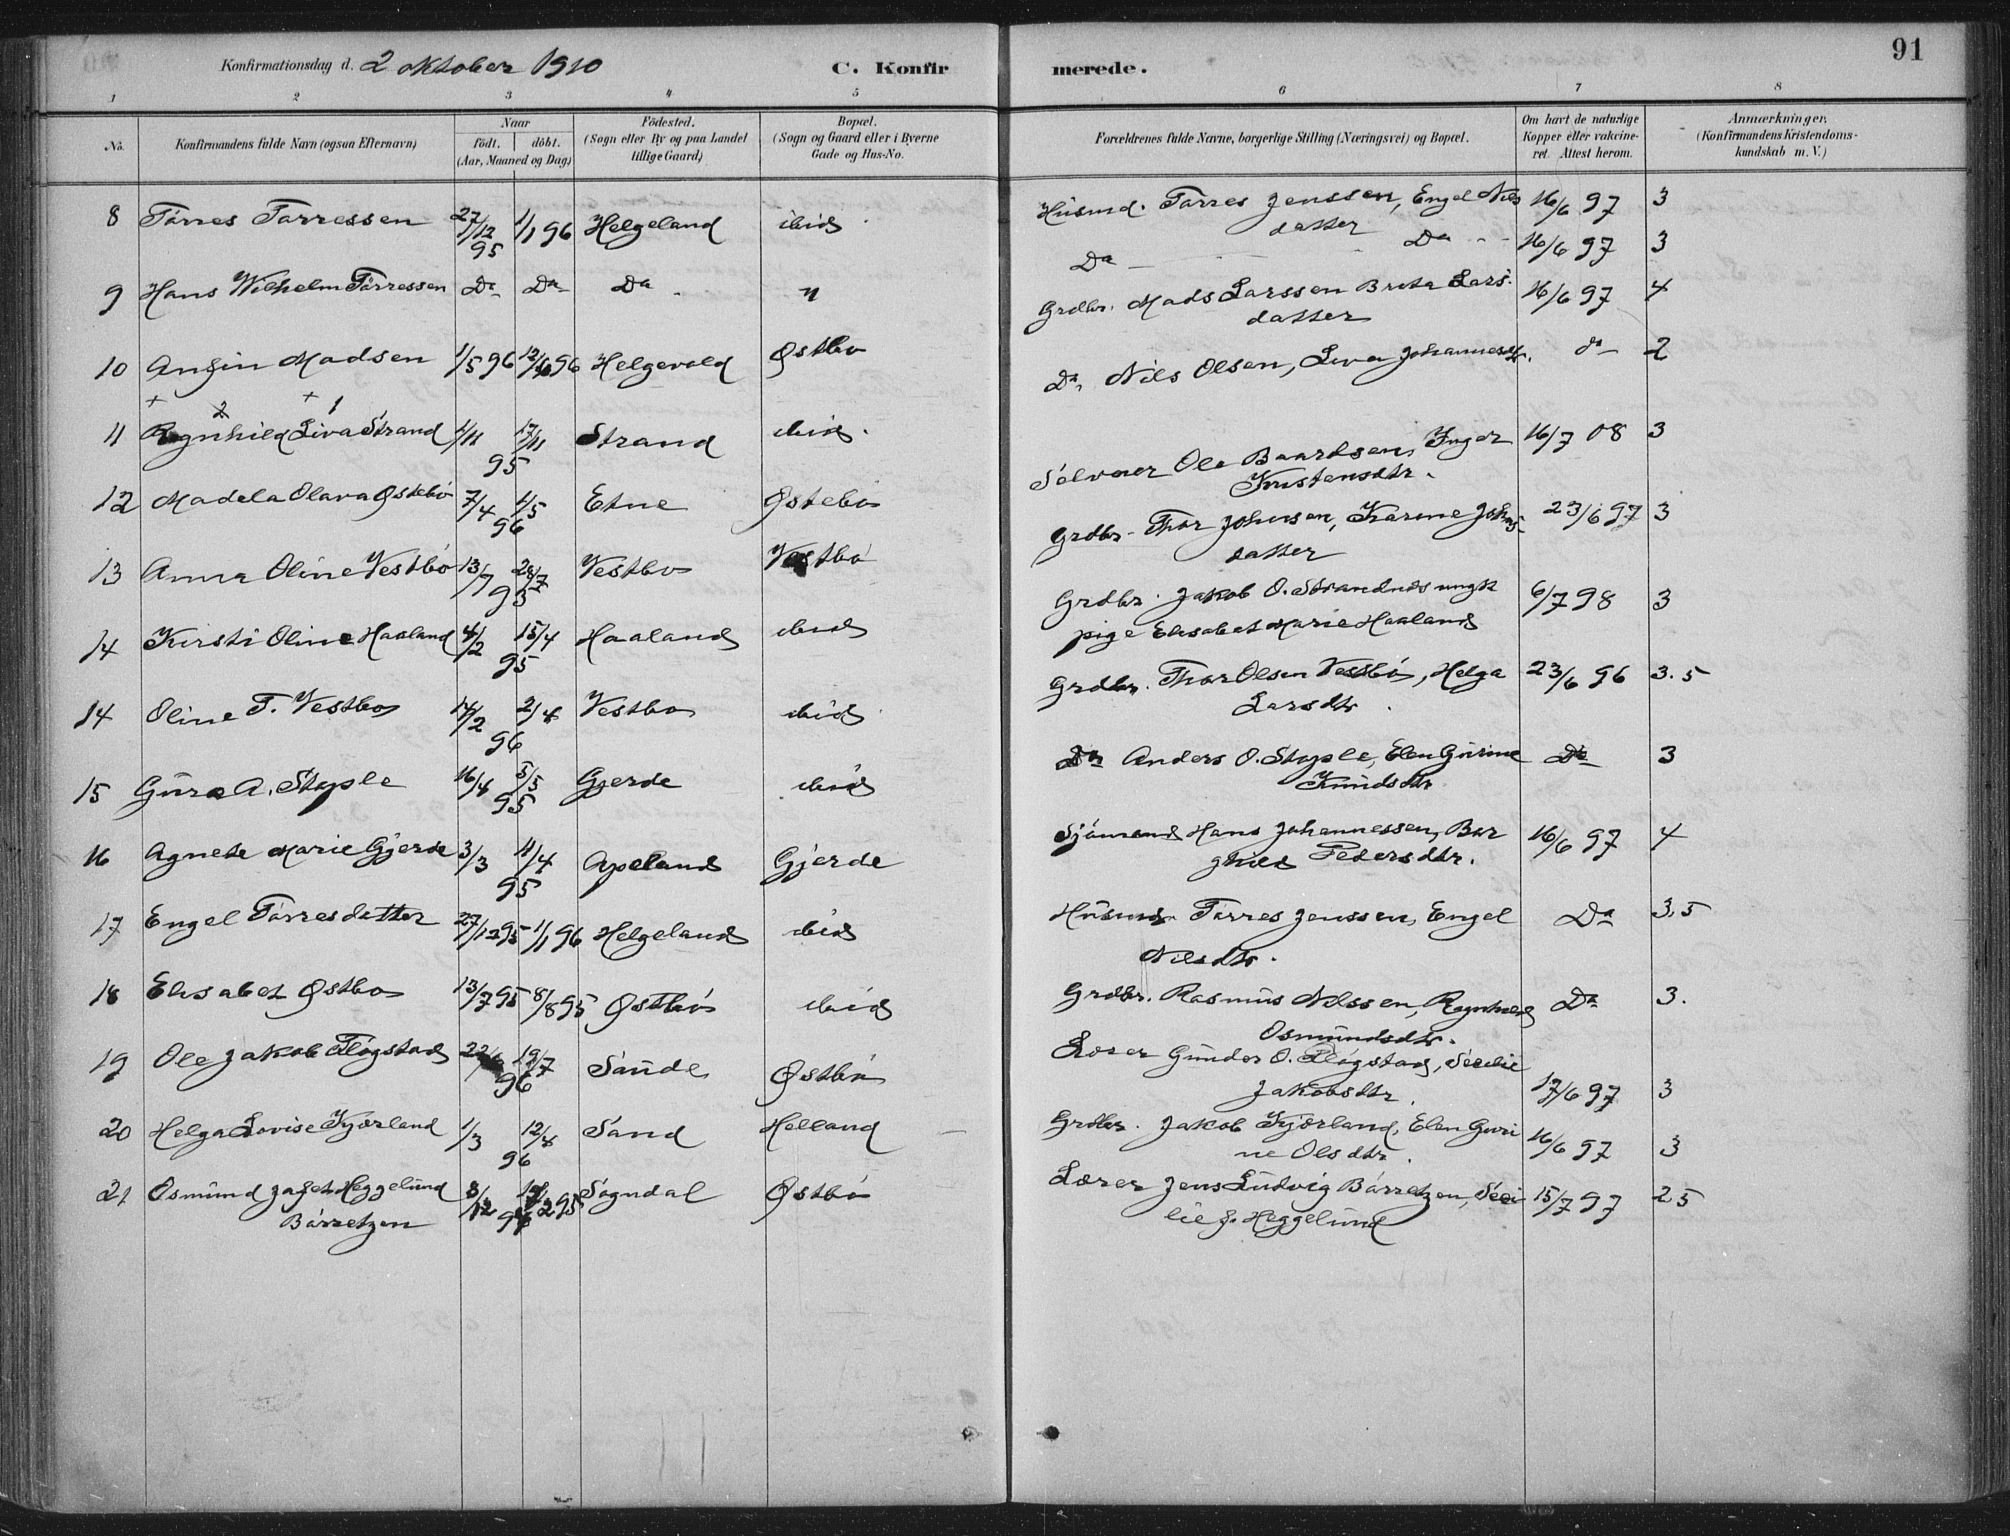 91
Konfirmationsdag d. 2 oktober 1910 C. Konfirmerede.
1 2 3 4 5 6 7 8
No. Konfirmandens fulde Navn (ogsaa Efternavn) Naar født. døbt. (Aar, Maaned og Dag) Fødested. (Sogn eller By og paa Landet tillige Gaard) Bopæl. (Sogn og Gaard eller i Byerne Gade og Hus-No. Forældrenes fulde Navne, borgerlige Stilling (Næringsvei) og Bopæl. Om havt de naturlige Kopper eller vakcineret. Attest herom. Anmærkninger. (Konfirmandens Kristendomskundskab m. V.)
8 Tórres Tórressen 27/12 95 1/1 96 Helgeland ibid Húsmd. Tórres Jenssen, Engel Nils datter 16/6 97 3
9 Hans Wilhelm Tórressen Do Do Do " Do Do 16/6 97 3
10 Anfin Madsen 1/5 96 12/6 96 Helgevold Østbo Grdbr. Mads Larssen Brita Lars datter 16/6 97 4
11 Ragnhild Liva Strand 1/11 17/11 95 Strand ibid. Do Nils Olsen, Liva Johannesdt. do 2
12 Madela Olava Østebó 7/4 1/5 96 Etne Østebó Sølvarer Ole Baardsen, Inger Kristensdtr. 16/7 08 3
13 Anna Oline Vestbó 13/7 28/7 95 Vestbo Vestbó Grdbr. Thor Johnsen, Karine Johns datter 23/6 97 3
14 Kirsti Oline Haaland 4/2 15/4 95 Haaland ibid Grdbr. Jakob O. Strandnes ungk pige Elisabet Marie Haaland 6/7 98 3
14 Oline T. Vestbo 14/2 2/4 96 Vestbo ibid Grdbr. Thor Olsen Vestbó, Helga Larsdtr. 23/6 96 3.5
15 Gúra A. Stople 16/4 5/5 95 Gjerde ibid Do Anders O. Stople, Elen Gúrine Knúdsdtr Do 3
16 Agnete Marie Gjerde 3/3 11/4 95 Apeland Gjerde Sjómand Hans Johannessen, Bor ghild Pedersdtr. 16/6 97 4
17 Engel Tórresdatter 27/12 95 1/1 96 Helgeland ibid Húsmd. Tórres Jenssen, Engel Nilsdtr. Do 3.5
18 Elisabet Østbo 13/7 95 8/8 95 Østbó ibid Grdbr. Rasmús Nilssen, Ragnhild Osmúndsdtr. Do 3.
19 Ole Jakob Fløgstad 19/7 96 Sánde Østbó Lærer Gúnder O. Fløgstad, Secilie Jakobsdtr. 17/6 97 3
20 Helga Lovise Kjørland 1/3 12/4 96 Sánd Helland Grdbr. Jakob Kjørland, Elen Guri ne Olsdtr. 16/6 97 3
21 Osmúnd Jafet Heggelúnd Bórretzen Sogndal Østbó Lærer Jens Lúdvig Bórretzen, Seci lie J. Heggelúnd 15/7 97 2 5